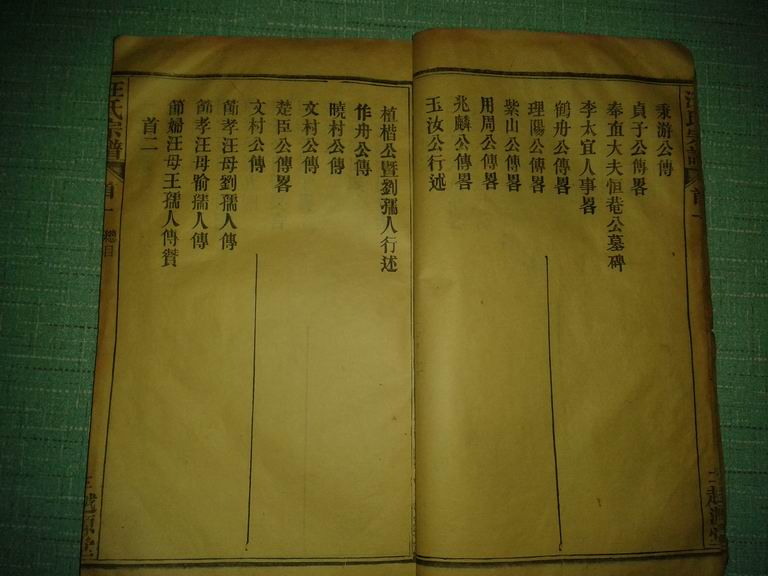 秉游公傳
貞子公傳畧
奉直大夫恒菴公墓碑
李太宜人事畧
鶴舟公傳畧
理陽公傳畧
紫山公傳畧
用周公傳畧
兆麟公傳畧
玉汝公行述
植楷公暨劉孺人行述
作舟公傳
曉村公傳
文村公傳
楚臣公傳畧
文村公傳
節孝汪母劉孺人傳
節孝汪母喻孺人傳
節婦汪母王孺人傳贊
首二
汪氏宗譜
首一
總目